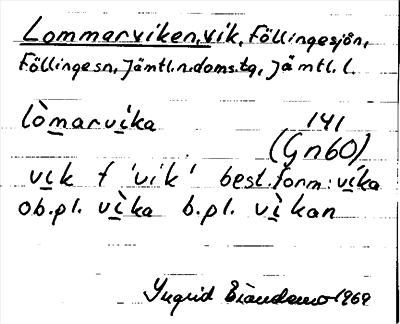 Lommarviken, vik, Föllingesjön,
Föllinge sn, Jämtl.n.doms.tg, Jämtl. l.
lò̱marvi̱ka 141
(Gn60)
vi̱k f 'vik' best.form: ví̱ka
ob.pl. vì̱ka b.pl. vì̱kan
Ingrid 1969